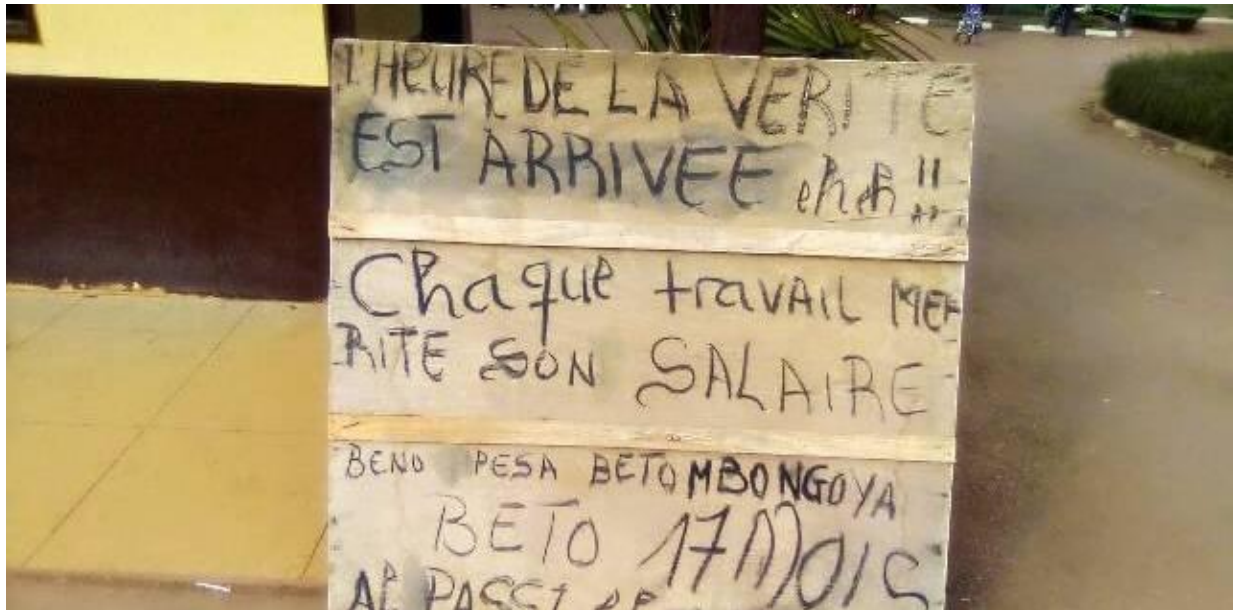 L'HEURE DE LA VERITE
EST ARRIVEE eheh!!
Chaque travail MEE
RITE SON SALAIRE
BENO PESA BETO MBONGO YA
BETO 17 MOIS